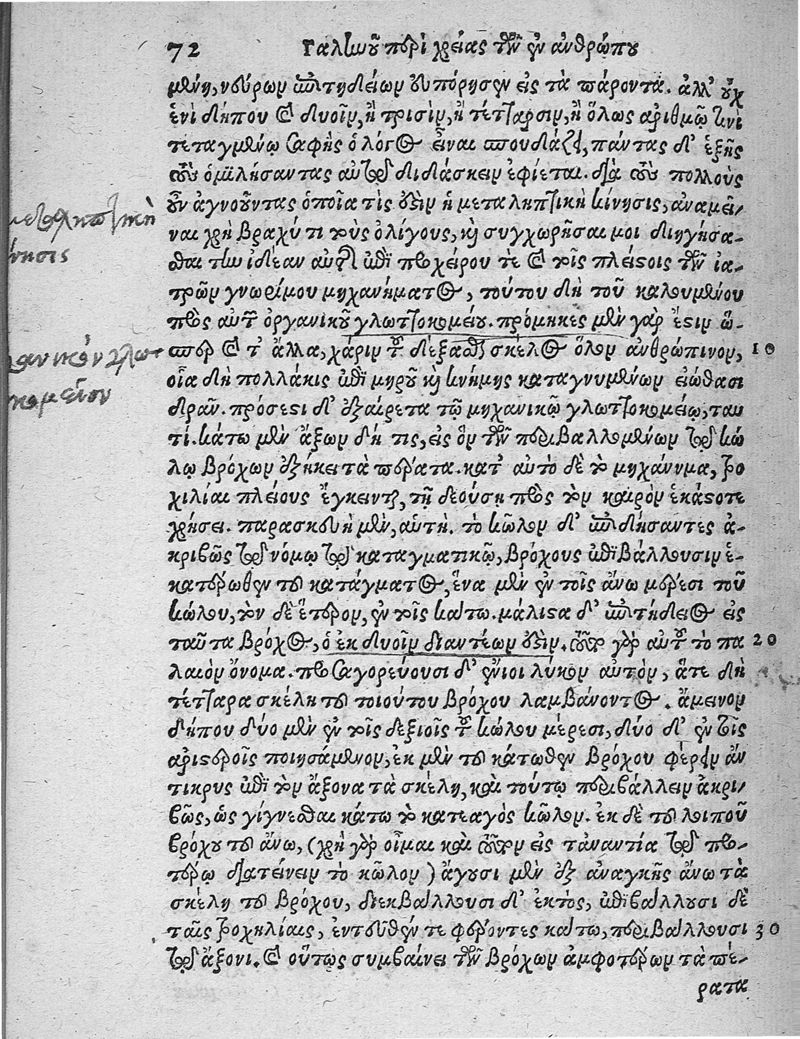 72 Γαληνοῦ περὶ χρείας τῶν ἐν ἀνθρώπου
μένη, νεύρων ἐπιτηδείων εὐπόρησεν εἰς τὰ πάροντα. ἀλλ' οὐχ
ἑνὶ δήπου καὶ δυοῖν, ἢ τρισὶν, ἢ τέτταρσιν, ἢ ὅλως ἀριθμῷ τινὶ
τεταγμένῳ σαφὴς ὁ λόγος εἶναι σπουδάζει, πάντας δ' ἑξῆς
τοὺς ὁμιλήσαντας αὐτῷ διδάσκειν ἐφίεται. διὰ τοὺς πολλοὺς
οὖν ἀγνοοῦντας ὁποῖα τίς ἐστιν ἡ μεταληπτικὴ κίνησις, ἀναμεῖ-
ναι χρὴ βραχύ τι τοὺς ὀλίγους, καὶ συγχωρῆσαι μοι διηγήσα-
σθαι τὴν ἰδέαν αὐτῆς ἐπὶ προχείρου τε καὶ τοῖς πλείστοις τῶν ἰα-
τρῶν γνωρίμου μηχανήματος, τούτου δὴ τοῦ καλουμένου
πρὸς αὐτῶν ὀργανικοῦ γλωττοκομείου. πρόμηκες μὲν γάρ ἐστιν ὥ-
σπερ καὶ τ' ἄλλα, χάριν τοῦ δέξασθαι σκέλος ὅλον ἀνθρώπινον, 10
οἷα δὴ πολλάκις ἐπὶ μηροῦ καὶ κνήμης καταγνυμένων εἰώθασι
δρᾶν. πρόσεστι δ' ἐξαίρετα τῷ μηχανικῷ γλωττοκομείῳ, ταυ
τί. κάτω μὲν ἄξων δή τις, εἰς ὃν τῶν περιβαλλομένων τῷ κώ
λῳ βρόχων ἐξήκει τὰ πέρατα. κατ' αὐτὸ δὲ τὸ μηχάνημα, τρο
χιλίαι πλείους ἔγκεινται, τῇ δεούσῃ πρὸς τὸν καιρὸν ἑκάστοτε
χρήσει. παρασκευὴ μὲν, αὐτή. τὸ κῶλον δ' ἐπιδήσαντες ἀ-
κριβῶς τῷ νόμῳ τῷ καταγματικῷ, βρόχους ἐπιβάλλουσιν ἑ-
κατέρωθεν τοῦ κατάγματος, ἕνα μὲν ἐν τοῖς ἄνω μέρεσι τοῦ
κώλου, τὸν δὲ ἕτερον, ἐν τοῖς κάτω. μάλιστα δ' ἐπιτήδειος εἰς
ταῦτα βρόχος, ὁ ἐκ δυοῖν διαντέων ἐστίν. τοῦτο γὰρ αὐτοῦ τὸ πα 20
λαιὸν ὄνομα. προσαγορεύουσι δ' ἔνιοι λύκον αὐτὸν, ἅτε δὴ
τέτταρα σκέλη τοῦ τοιούτου βρόχου λαμβάνοντος. ἄμεινον
δήπου δύο μὲν ἐν τοῖς δεξιοῖς τοῦ κώλου μέρεσι, δύο δ' ἐν τοῖς
ἀριστεροῖς ποιησάμενον, ἐκ μὲν τοῦ κάτωθεν βρόχου φέρειν ἄν
τικρυς ἐπὶ τὸν ἄξονα τὰ σκέλη, καὶ τούτῳ περιβάλλειν ἀκρι-
βῶς, ὡς γίγνεσθαι κάτω τὸ κατεαγὸς κῶλον. ἐκ δὲ τοῦ λοιποῦ
βρόχου τοῦ ἄνω, (χρὴ γὰρ οἶμαι καὶ τοῦτον εἰς τἀναντία τῷ προ-
τέρῳ διατείνειν τὸ κῶλον) ἄγουσι μὲν ἐξ ἀναγκῆς ἄνω τὰ
σκέλη τοῦ βρόχου, διεκβάλλουσι δ' ἐκτὸς, ἐπιβάλλουσι δὲ
ταῖς τροχηλίαις, ἐντεῦθέν τε φέροντες κάτω, περιβάλλουσι 30
τῷ ἄξονι. καὶ οὕτως συμβαίνει τῶν βρόχων ἀμφοτέρων τὰ πέ-
ρατα
μεταληπτικὴ